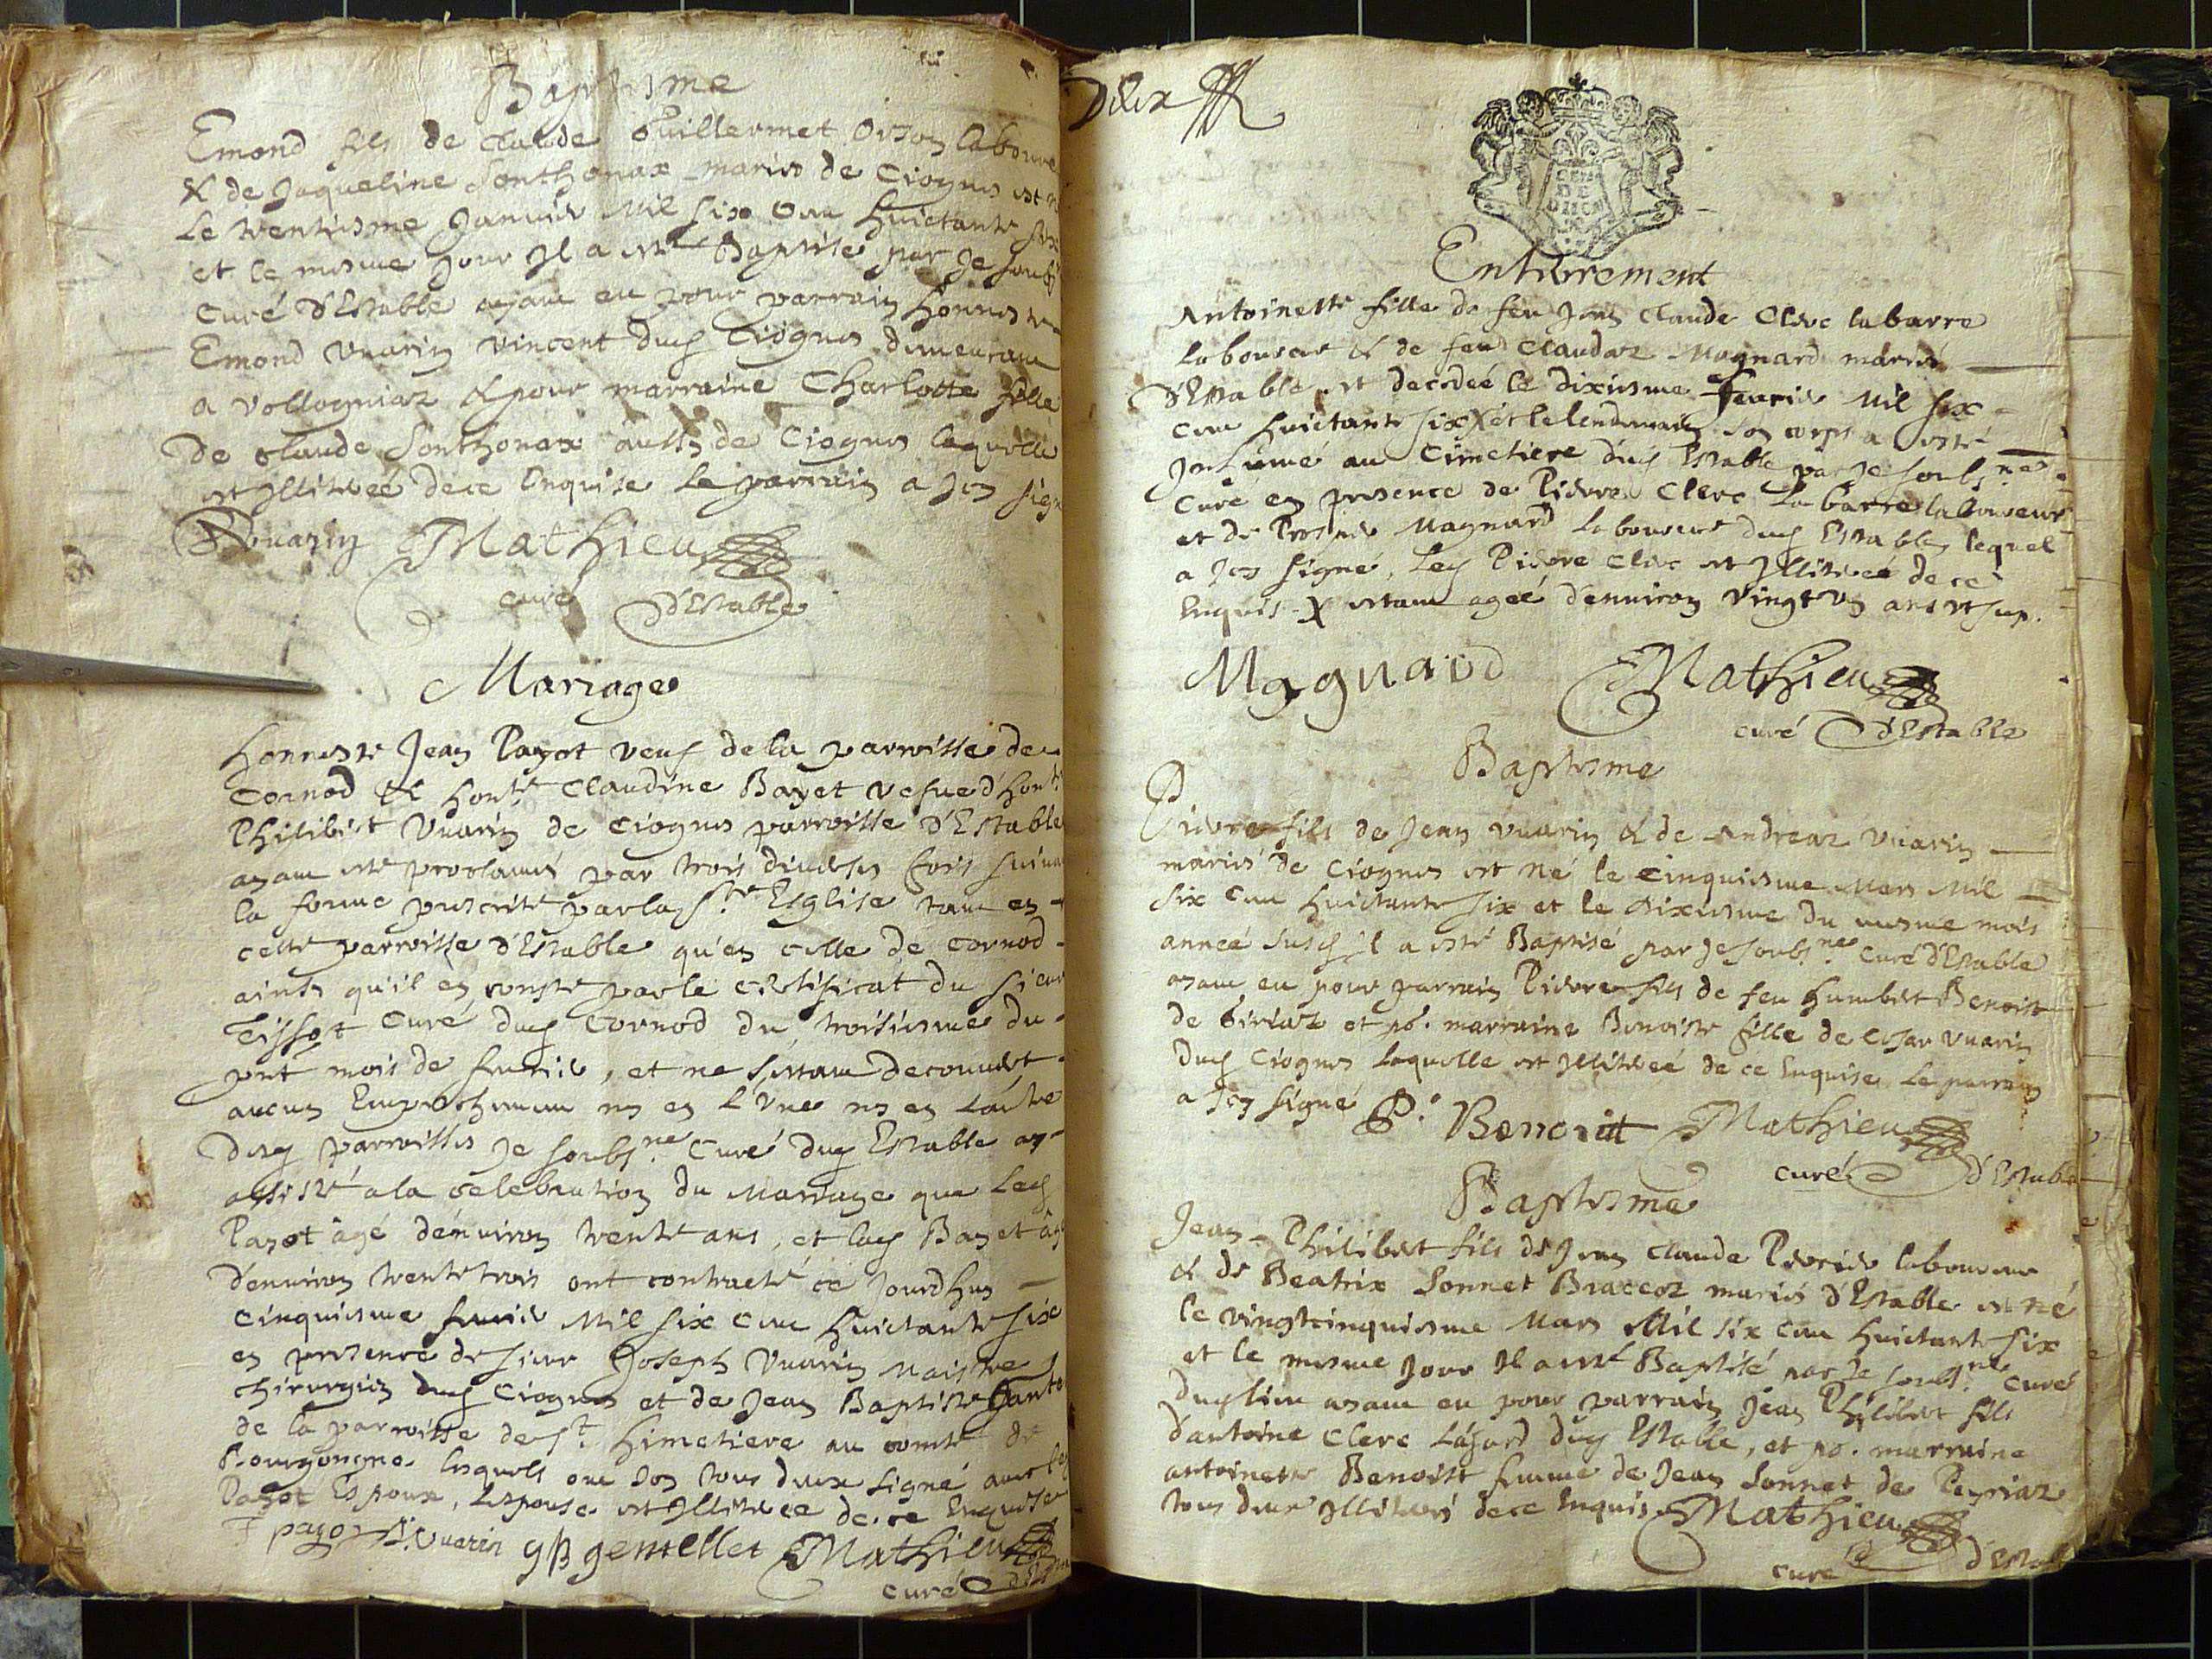 Baptisme
Emond fils de Claude Guillermet Oison laboure
& de Jaqueline Sonthonax mariés de Ciognes est
Le trentiesme Januier Mil six Cent huictante six
et le mesme jour Il a esté Baptisé par Je soubs
Curé d'Estable ayant eu pour parrain honneste
Emond Vuarin Vincent dud Ciognes demeurant
a Vollogniaz & pour marraine Charlotte fille
De Claude Sonthonax aussy de Ciognes laquelle
est Illitereé de ce Enquise Le parrain a Icy sign
Vuarin Mathieu
curé d'Estable
Mariage
Honneste Jean Payot veuf de la parroisse de
Cornod & honte Claudine Bayet vefue d'hont
Philibert Vuarin de Ciognes parroisse d'Estable
ayant esté proclamés par trois diuerses fois suiuan
la forme prescrite par la Ste Esglise tant en
cette parroisse d'Estable qu'en celle de Cornod
ainsy qu'il en conste par le certificat du sieur
Tissot Curé dud Cornod du troisiesme du
pnt mois de feurier, et ne s'estant decouuert
aucun Empeschement ny en L'Vne ny en L'autre
Desd parroisses Je soubsne Curé dud Estable ay
assisté a la celebration du Mariage que Led
Payot âgé d'enuiron trente ans, et lad Bayet âg
d'enuiron trente trois ont contracté ce Jourdhuy
Cinquiesme feurier Mil six Cent huictante six
en presence de sieur Joseph Vuarin Maistre
chirurgien dud Ciognes et de Jean Baptiste
de la parroisse de St Himetiere au comté de
Bourgongne lesquels ont Icy tous deux signé auec led
Payot Espoux, L'espouse est Illitereé de ce Enquise
payot J. Vuarin gß gentellet Mathieu
curé
Deux
GEN
DE
Enterrement
Antoinette fille de feu Jean Claude Clerc labarre
laboureur & de feu Claudaz Magnard mariés
d'Estable est decedeé le dixiesme feurier Mil six
Cent huictante six X et le lendemain son corps a esté
Inhumé au Cimetiere dud Estable par Je soubsne
Curé en presence de Pierre Clerc Labarre laboureur
et de Prosper Magnard laboureur dud Estable lequel
a Icy signé, Led Pierre Clerc est Illitereé de ce
Enquis X estant ageé d'enuiron vingt vn ans
Magnard Mathieu
curé d'Estable
Baptisme
Pierre fils de Jean Vuarin & de Andreaz Vuarin
mariés de Ciognes est né le Cinquiesme Mars Mil
six Cent huictante six et le dixiesme du mesme mois
anneé susd il a esté Baptisé par Je soubsne Curé d'Estable
ayant eu pour parrain Pierre fils de feu Humbert Benoist
de Giriaz et po. marraine Benoiste fille de Cesar Vuarin
dud Ciognes laquelle est Illitereé de ce Enquise Le parrain
a Icy signé P. Benoist Mathieu
curé d'Estable
Baptisme
Jean-Philibert fils de Jean Claude Perrier laboureur
& de Beatrix Sonnet Braccoz mariés d'Estable est né
le vingtcinquiesme Mars Mil six Cent huictante six
et le mesme Jour Il a esté Baptisé par Je soubsne Curé
dud lieu ayant eu pour parrain Jean Philibert fils
d'antoine Clerc Lazard dud Estable, et po. marraine
antoinette Benoist femme de Jean Sonnet de Peyriaz
tous deux Illiterés de ce Enquis Mathieu
curé d'Estab